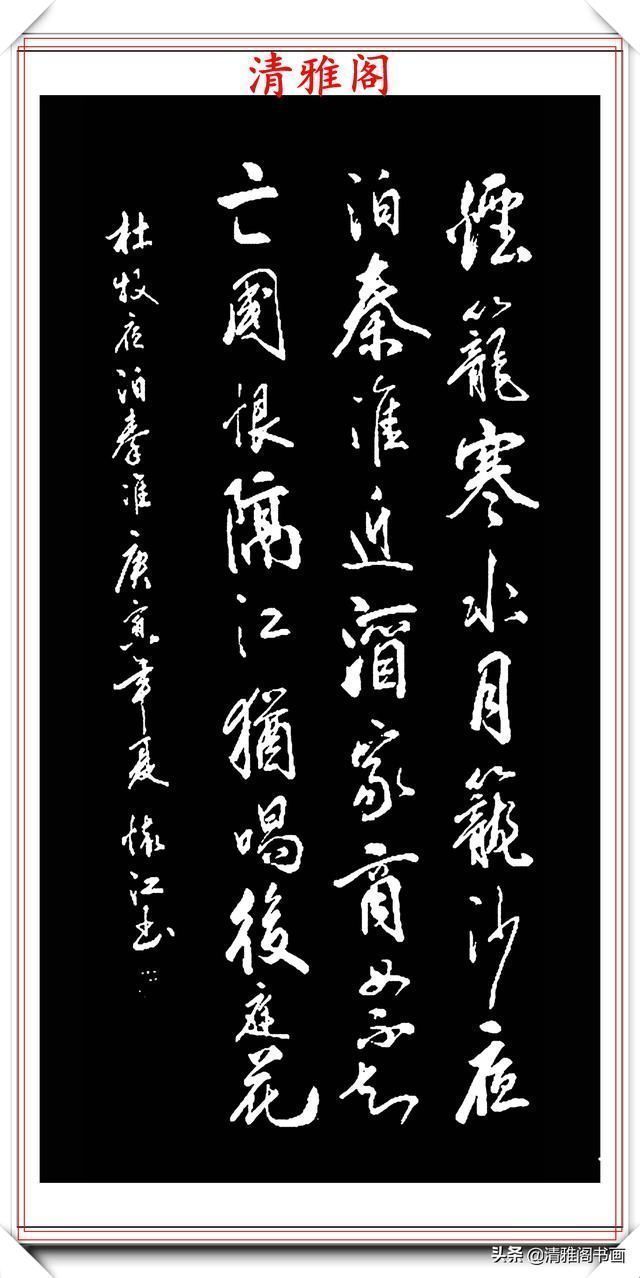 清雅阁
煙籠寒水月籠沙夜
泊秦淮近酒家商女不知
亡國恨隔江猶唱後庭花
杜牧夜泊秦淮庚寅年夏懷江书
头条@清雅阁书画